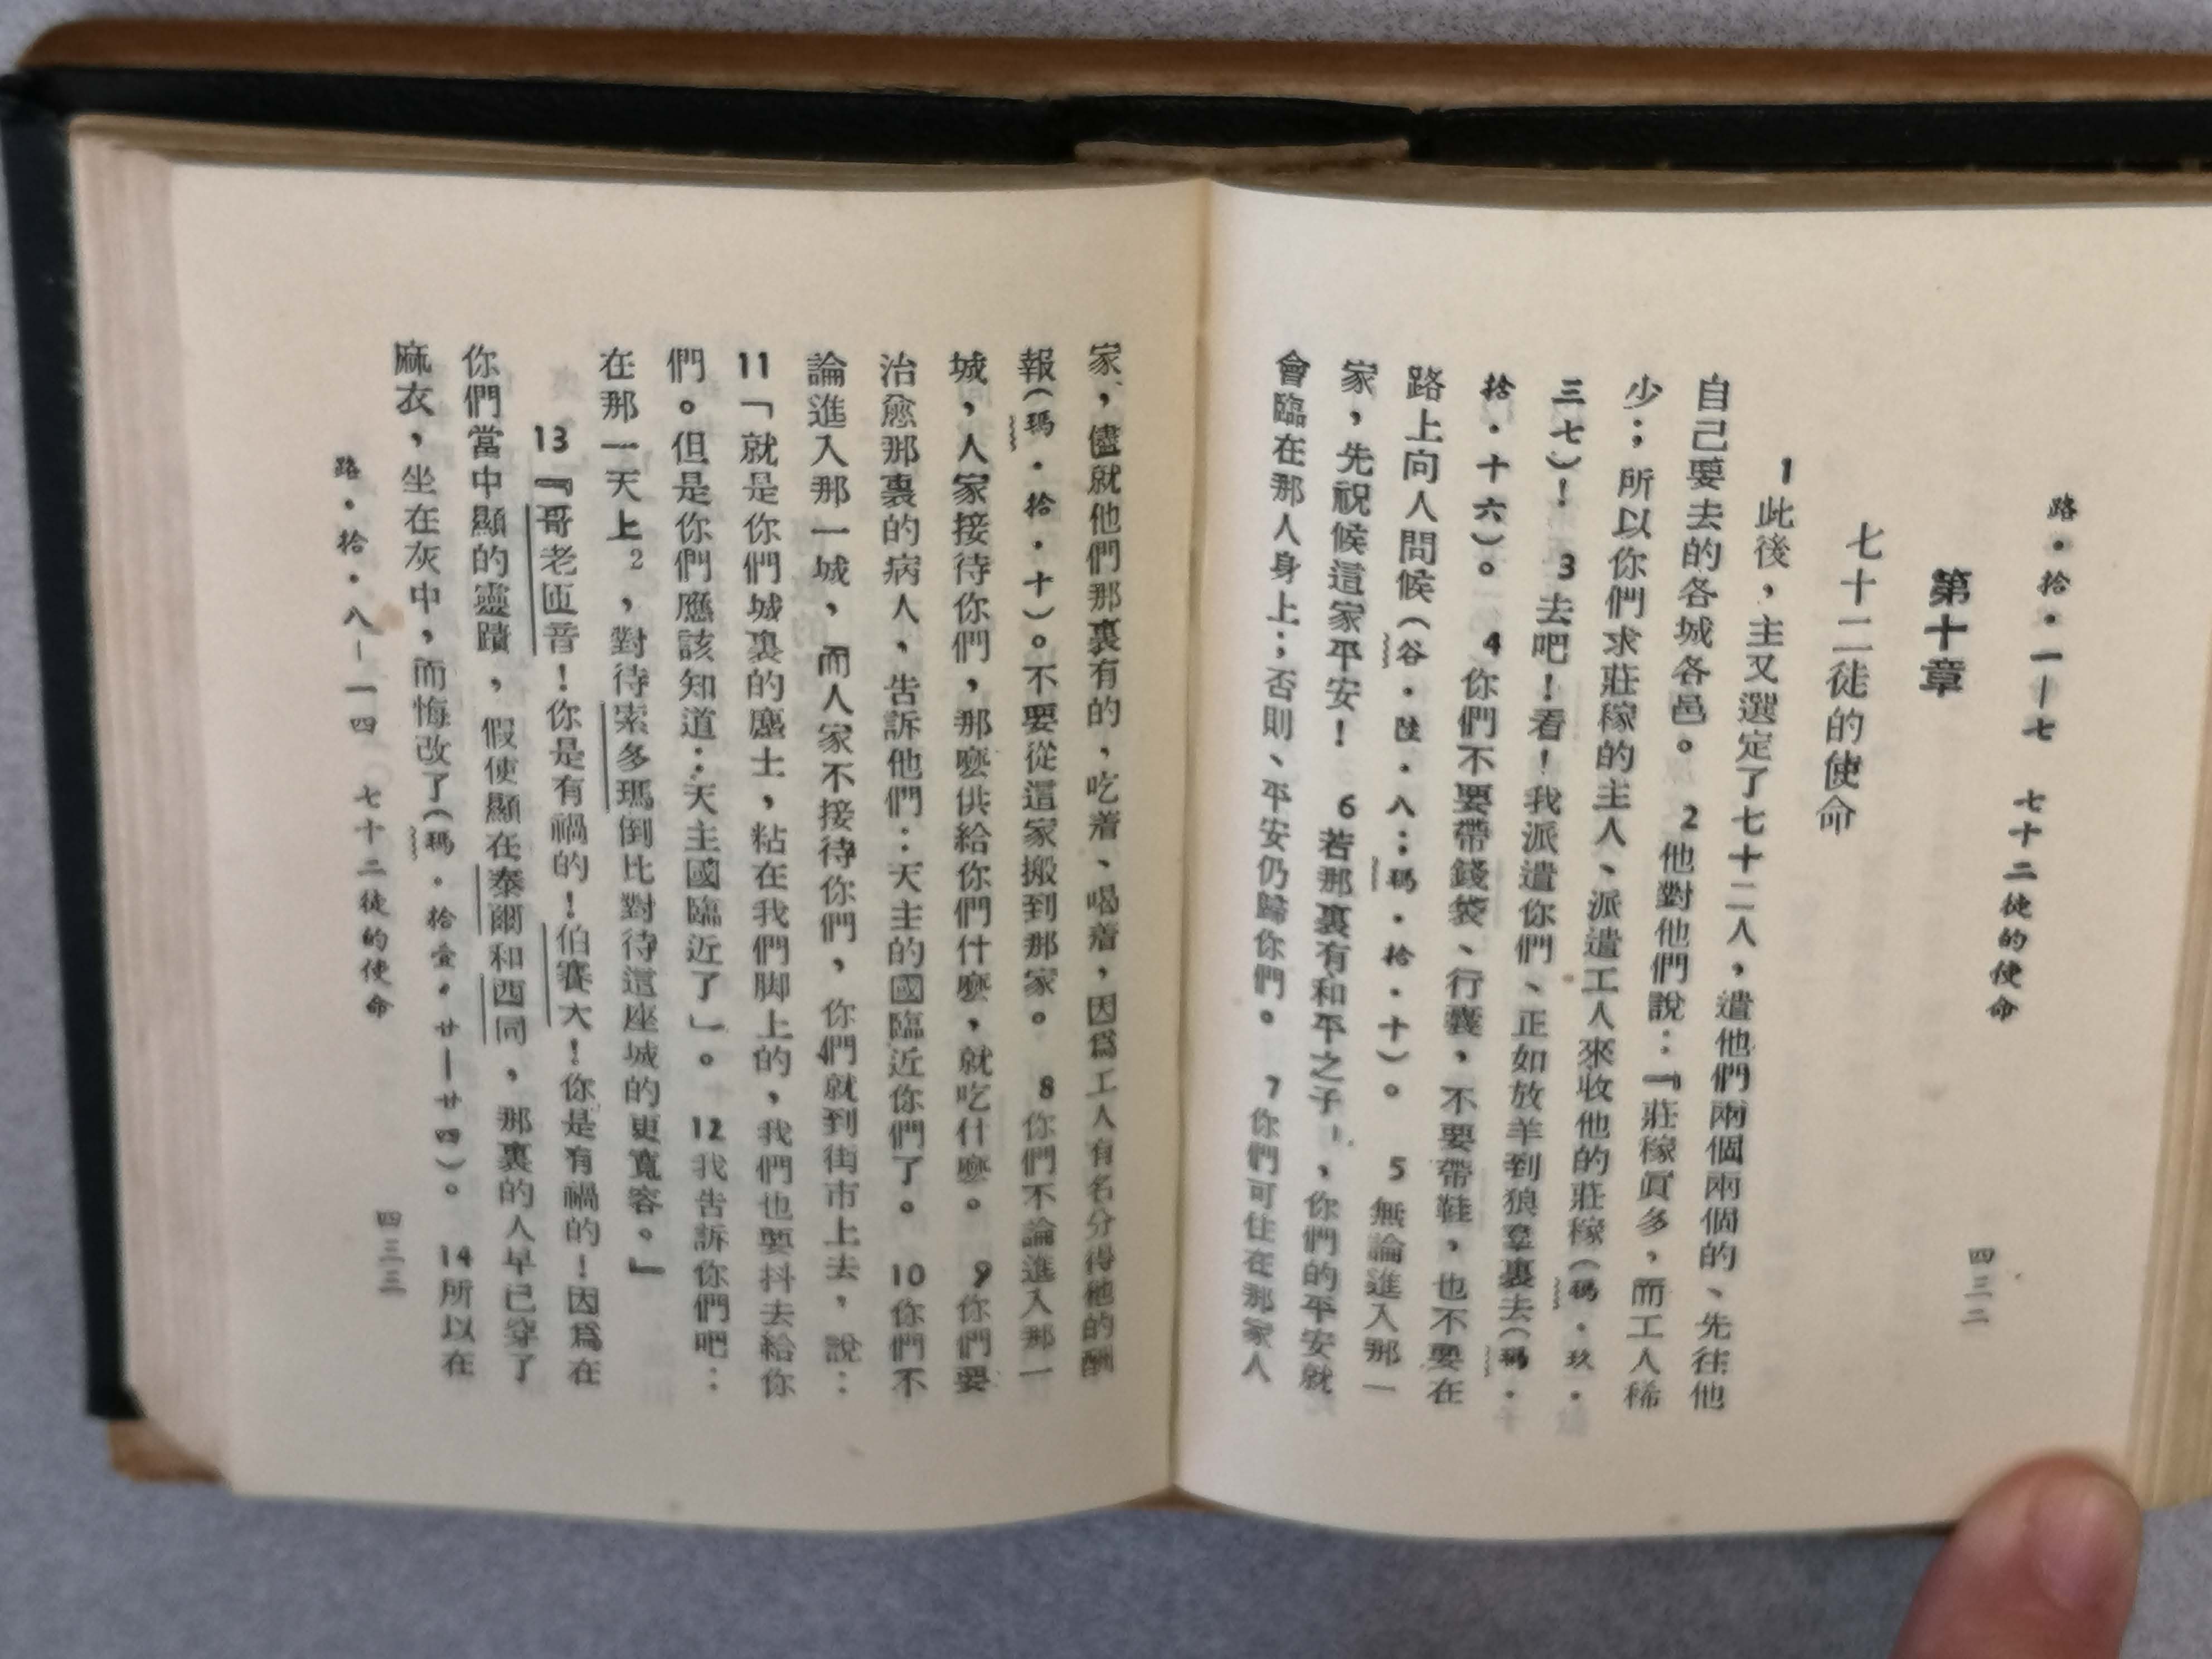 路·拾·一—七　七十二徒的使命
四三二
第十章
七十二徒的使命
1此後，主又選定了七十二人，遣他們兩個兩個的、先往他
自己要去的各城各邑。　2他對他們說：『莊稼眞多，而工人稀
少；所以你們求莊稼的主人、派遣工人來收他的莊稼（瑪·玖·
三七）！　3去吧！看！我派遣你們、正如放羊到狼羣裏去（瑪·
拾·十六）。　4你們不要帶錢袋、行囊，不要帶鞋，也不要在
路上向人問候（谷·陸·八；瑪·拾·十）。　5無論進入那一
家，先祝候這家平安！　6若那裏有和平之子1，你們的平安就
會臨在那人身上；否則、平安仍歸你們。　7你們可住在那家人
家，儘就他們那裏有的，吃着、喝着，因爲工人有名分得他的酬
報（瑪·拾·十）。不要從這家搬到那家。　8你們不論進入那一
城，人家接待你們，那麼供給你們什麼，就吃什麼。　9你們要
治愈那裏的病人，告訴他們：天主的國臨近你們了。　10你們不
論進入那一城，而人家不接待你們，你們就到街市上去，說：
11「就是你們城裏的塵土，粘在我們脚上的，我們也要抖去給你
們。但是你們應該知道：天主國臨近了」。　12我告訴你們吧：
在那一天上2，對待索多瑪倒比對待這座城的更寬容。』
13『哥老匝音！你是有禍的！伯賽大！你是有禍的！因爲在
你們當中顯的靈蹟，假使顯在泰爾和西同，那裏的人早已穿了
麻衣，坐在灰中，而悔改了（瑪·拾壹·廿—廿四）。　14所以在
路·拾·八—一四　七十二徒的使命
四三三